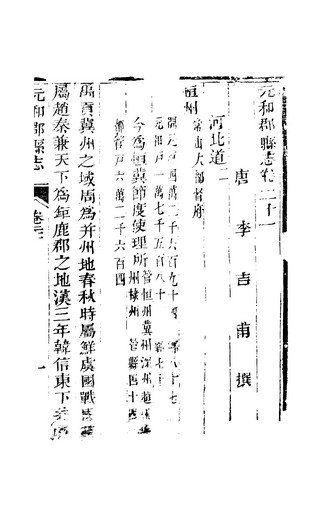 元和郡縣志卷二十一
唐 李吉甫 撰
河北道二
恒州 常山 大都督府
開元戶四萬二千六百九十四
元和戶一萬七千五百八十
今為恒冀節度使理所 管恒州冀州深州趙州
州棣州 管縣四十
都管戶六萬二千六百四
禹貢冀州之域周為并州地春秋時屬鮮虞國戰國
屬趙秦兼天下為鉅鹿郡之地漢三年韓信東下井陘
元和郡縣志 卷二十一 一